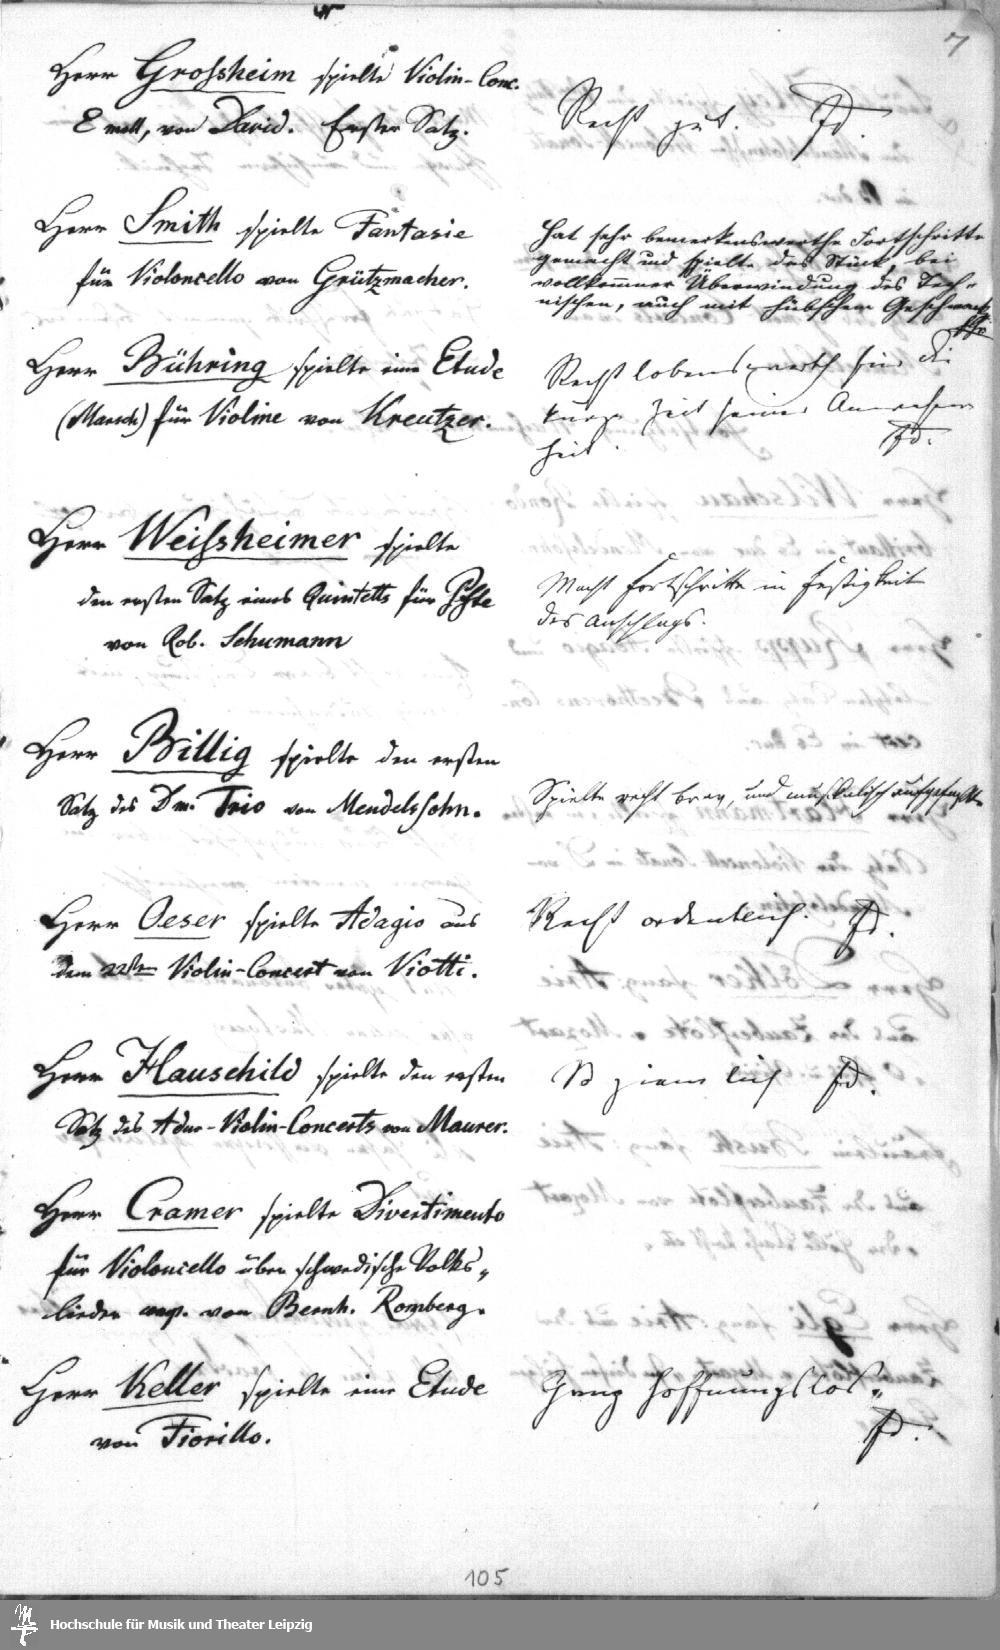 7
Herr Grossheim spielte Violin-Conc.
E moll, von David. Erster Satz.
Recht gut. FD.
Herr Smith spielte Fantasie
für Violoncello von Grützmacher.
Hat sehr bemerkenswerthe Fortschritte
gemacht und spielte das Stück, bei
vollkommner Überwindung des Tech-
nischen, auch mit hübschem Geschmack
Herr Bühring spielte eine Etude
(Marsch) für Violine von Kreutzer.
Recht lobenswerth für die
kurze Zeit seiner Anwesen
heit. FD.
Herr Weissheimer spielte
den ersten Satz eines Quintetts für Pfte
von Rob. Schumann
Macht Fortschritte in Festigkeit
des Anschlags.
Herr Billig spielte den ersten
Satz des Dm. Trio von Mendelssohn.
Spielte recht brav, und musikalisch aufgefasst.
Herr Oeser spielte Adagio aus
dem 22sten Violin-Concert von Viotti.
Recht ordentlich. FD.
Herr Hauschild spielte den ersten
Satz des A dur-Violin-Concerts von Maurer.
So ziemlich FD.
Herr Cramer spielte Divertimento
für Violoncello über schwedische Volks„
lieder comp. von Bernh. Romberg.
Herr Keller spielte eine Etude
von Fiorillo.
Ganz hoffnungslos„
FD.
105
Hochschule für Musik und Theater Leipzig